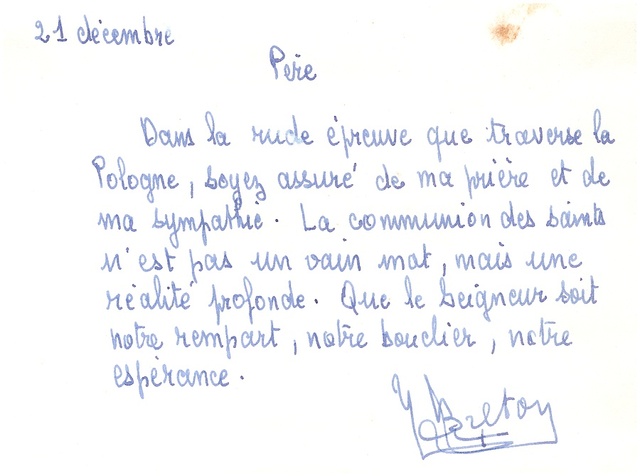 21 décembre
Père
Dans la rude épreuve que traverse la
Pologne, soyez assuré de ma prière et de
ma sympathie. La communion des saints
n'est pas un vain mot, mais une
réalité profonde. Que le Seigneur soit
notre rempart, notre bouclier, notre
espérance.
Y Breton